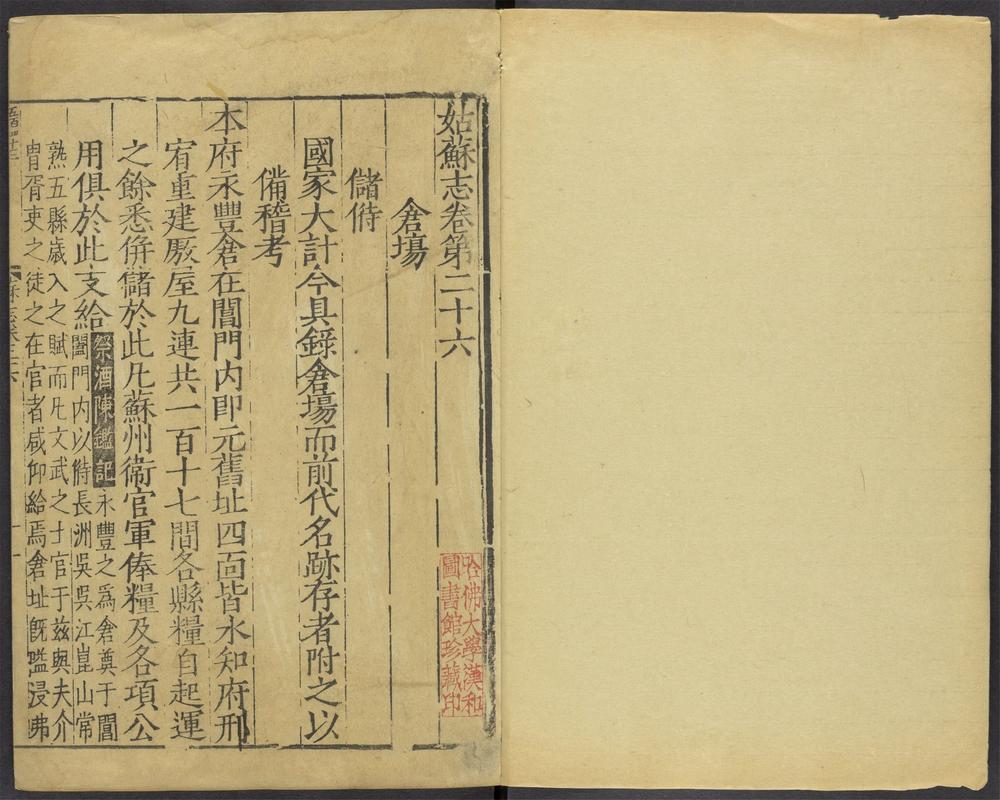 姑蘇志卷第二十六
倉塲
儲偫
國家大計今具錄倉塲而前代名跡存者附之以
備稽考
本府永豐倉在閶門内即元舊址四靣皆水知府刑
宥重建厫屋九連共一百十七間各縣糧自起運
之餘悉併儲於此凡蘇州衞官軍俸糧及各項公
用俱於此支給祭酒陳鑑記永豐之爲倉奠于閶
閶門内以偫長洲吳吳江崑山常
熟五縣歳入之賦而凡文武之士官于兹與夫介
胄胥吏之徒之在官者咸仰給焉倉址旣隘浸
哈佛大學漢和
圖書館珍藏印